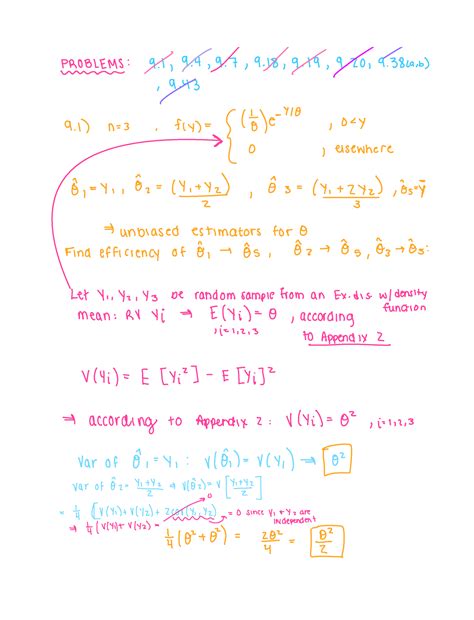 PROBLEMS: 9.1, 9.4, 9.7, 9.18, 9.19, 9.20, 9.38(a,b)
, 9.43
9.1) n=3 , f(y) = { (1/θ)e^-y/θ , 0<y
0 , elsewhere
θ̂₁=Y₁, θ̂₂ = (Y₁+Y₂)/2 , θ̂3 = (Y₁+2Y₂)/3 , θ̂5=Ȳ
⇒ unbiased estimators for θ
Find efficiency of θ̂₁ → θ̂5, θ̂2 → θ̂5, θ̂3 → θ̂5:
Let Y₁, Y₂, Y3 be random sample from an Ex.dis. w/density function
mean: RV Yi ⇒ E(Yi) = θ , according
,i=1,2,3
to Appendix 2
V(Yi) = E [Yi²] - E [Yi]²
⇒ according to Appendix 2: V(Yi) = θ² , i=1,2,3
Var of θ̂₁ = Y₁ : V(θ̂₁) = V(Y₁) ⇒ θ²
Var of θ̂2 = Y₁+Y₂/2 ⇒ V(θ̂2) = V [Y₁+Y₂/2]
0
= 1/4 [V(Y₁)+V(Y2)+2cov(Y₁,Y₂) = 0 since Y₁+Y₂ are independent
⇒ 1/4 (V(Y₁)+V(Y2) =
1/4 (θ²+θ²) = 2θ²/4 = θ²/2